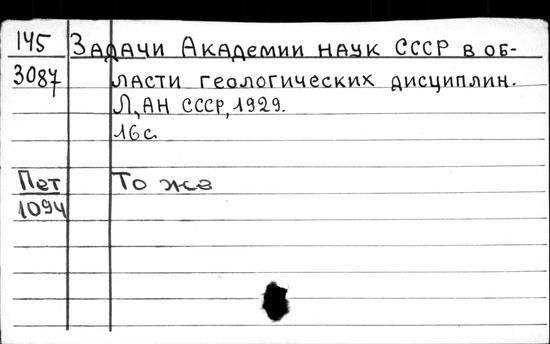 145 Задачи Академии наук СССР в об-
3087 ласти геологических дисциплин.
Л, АН СССР, 1929.
16 с.
Пет То же
1094